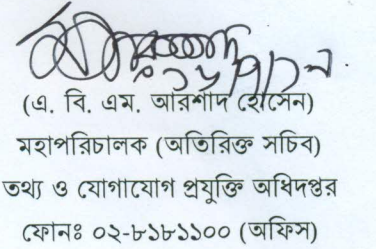 (এ. বি. এম. আরশাদ হোসেন)
মহাপরিচালক (অতিরিক্ত সচিব)
তথ্য ও যোগাযোগ প্রযুক্তি অধিদপ্তর
ফোনঃ ০২-৮১৮১১০০ (অফিস)